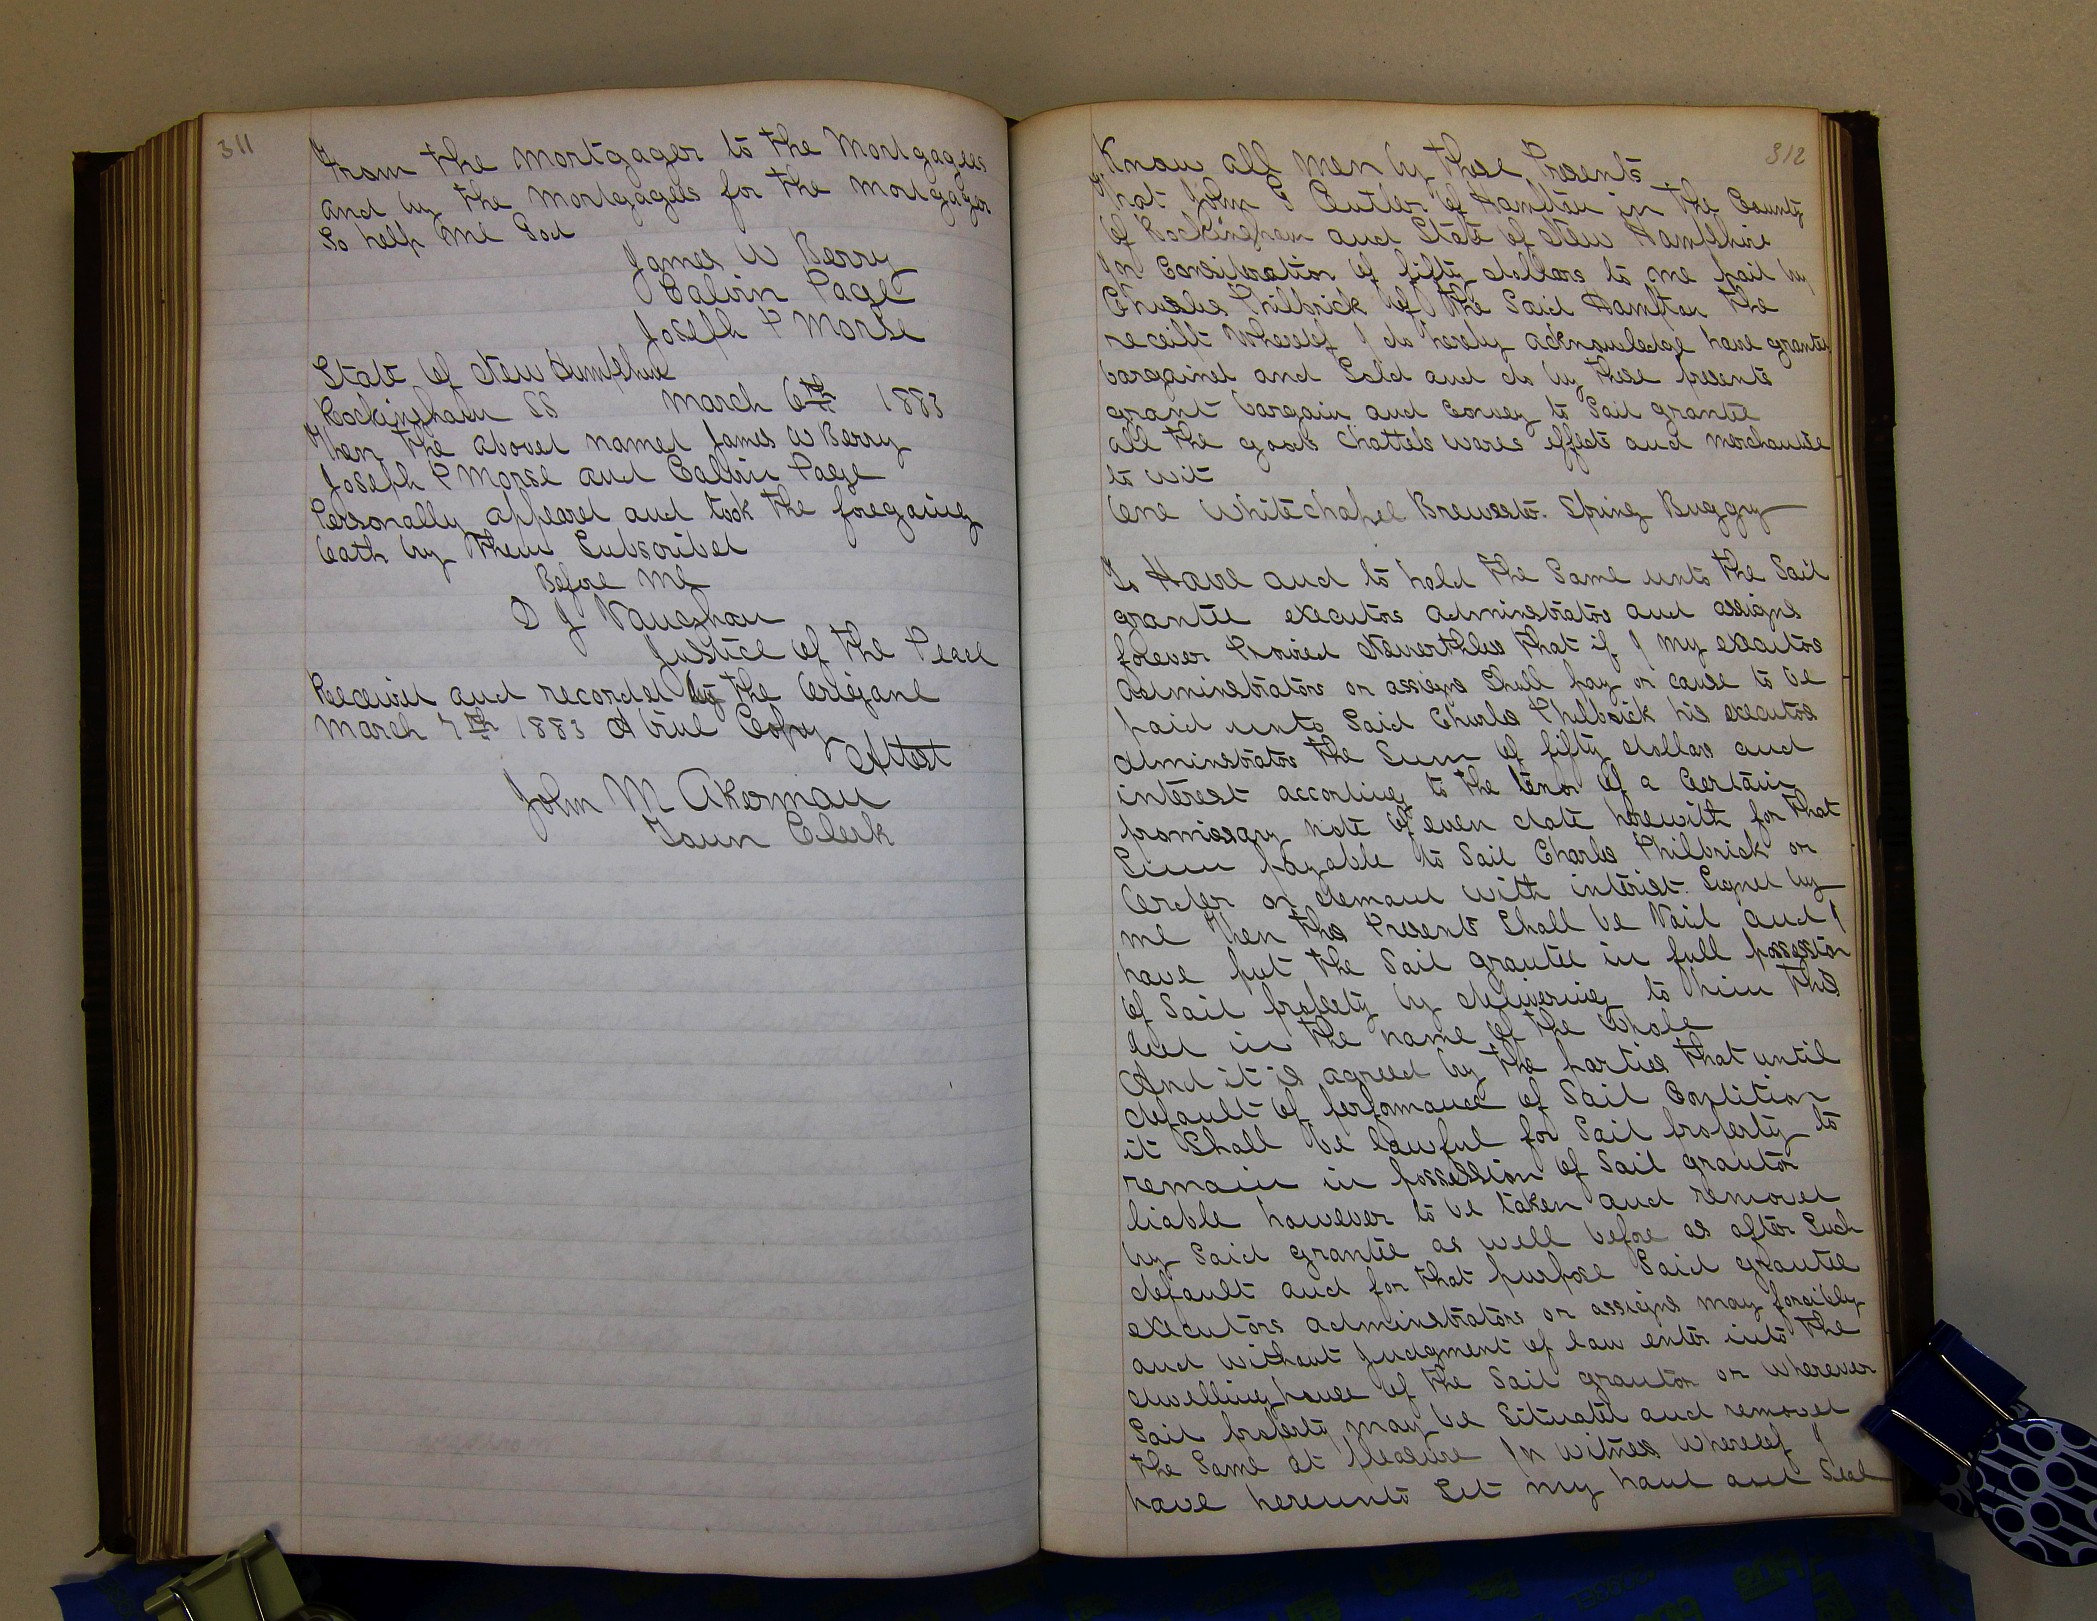 311
From the Mortgager to the Mortgagees
and by the Mortgagees for the Mortgager
So help me God
James W Berry
Calvin Page
Joseph P Morse
State of New Hampshire
Rockingham SS March 6th 1883
Then the above named James W Berry
Joseph P Morse and Calvin Page
Personally appeared and took the foregoing
Oath by them Subscribed
Before Me
D J Vaughan
Justice of the Peace
Received and recorded by the Original
March 7th 1883 A true Copy
Attest
John M Akerman
Town Clerk
312
Know all Men by these Presents
That John G Cutler of Hampton in the County
of Rockingham and State of New Hampshire
for Consideration of fifty dollars to me paid by
Charles Philbrick of the Said Hampton the
receipt Whereof I do hereby acknowledge have granted
bargained and Sold and do by these presents
grant bargain and Convey to Said grantee
all the goods Chattels wares effects and merchandise
to wit
One Whitechapel Brewster Spring Buggy
To Have and to hold the Same unto the Said
grantee executors administrators and assigns
forever Provided Nevertheless that if I my executors
administrators or assigns Shall pay or cause to be
paid unto Said Charles Philbrick his executors
administrators the Sum of fifty dollars and
interest according to the tenor of a Certain
promissary Note of even date herewith for that
Sum payable to Said Charles Philbrick or
Order on demand with interest. Signed by
me Then these Presents Shall be Void and I
have put the Said grantee in full possession
of Said property by delivering to him this
deed in the name of the Whole
And it is agreed by the parties that until
default of performance of Said Condition
it Shall be lawful for Said property to
remain in possession of Said grantor
liable however to be taken and removed
by Said grantee as well before as after Such
default and for that purpose Said grantee
executors administrators or assigns may forcibly
and without Judgment of law enter into the
dwelling house of the Said grantor or wherever
Said property may be Situated and removed
the Same at pleasure In Witness Whereof I
have hereunto Set my hand and Seal